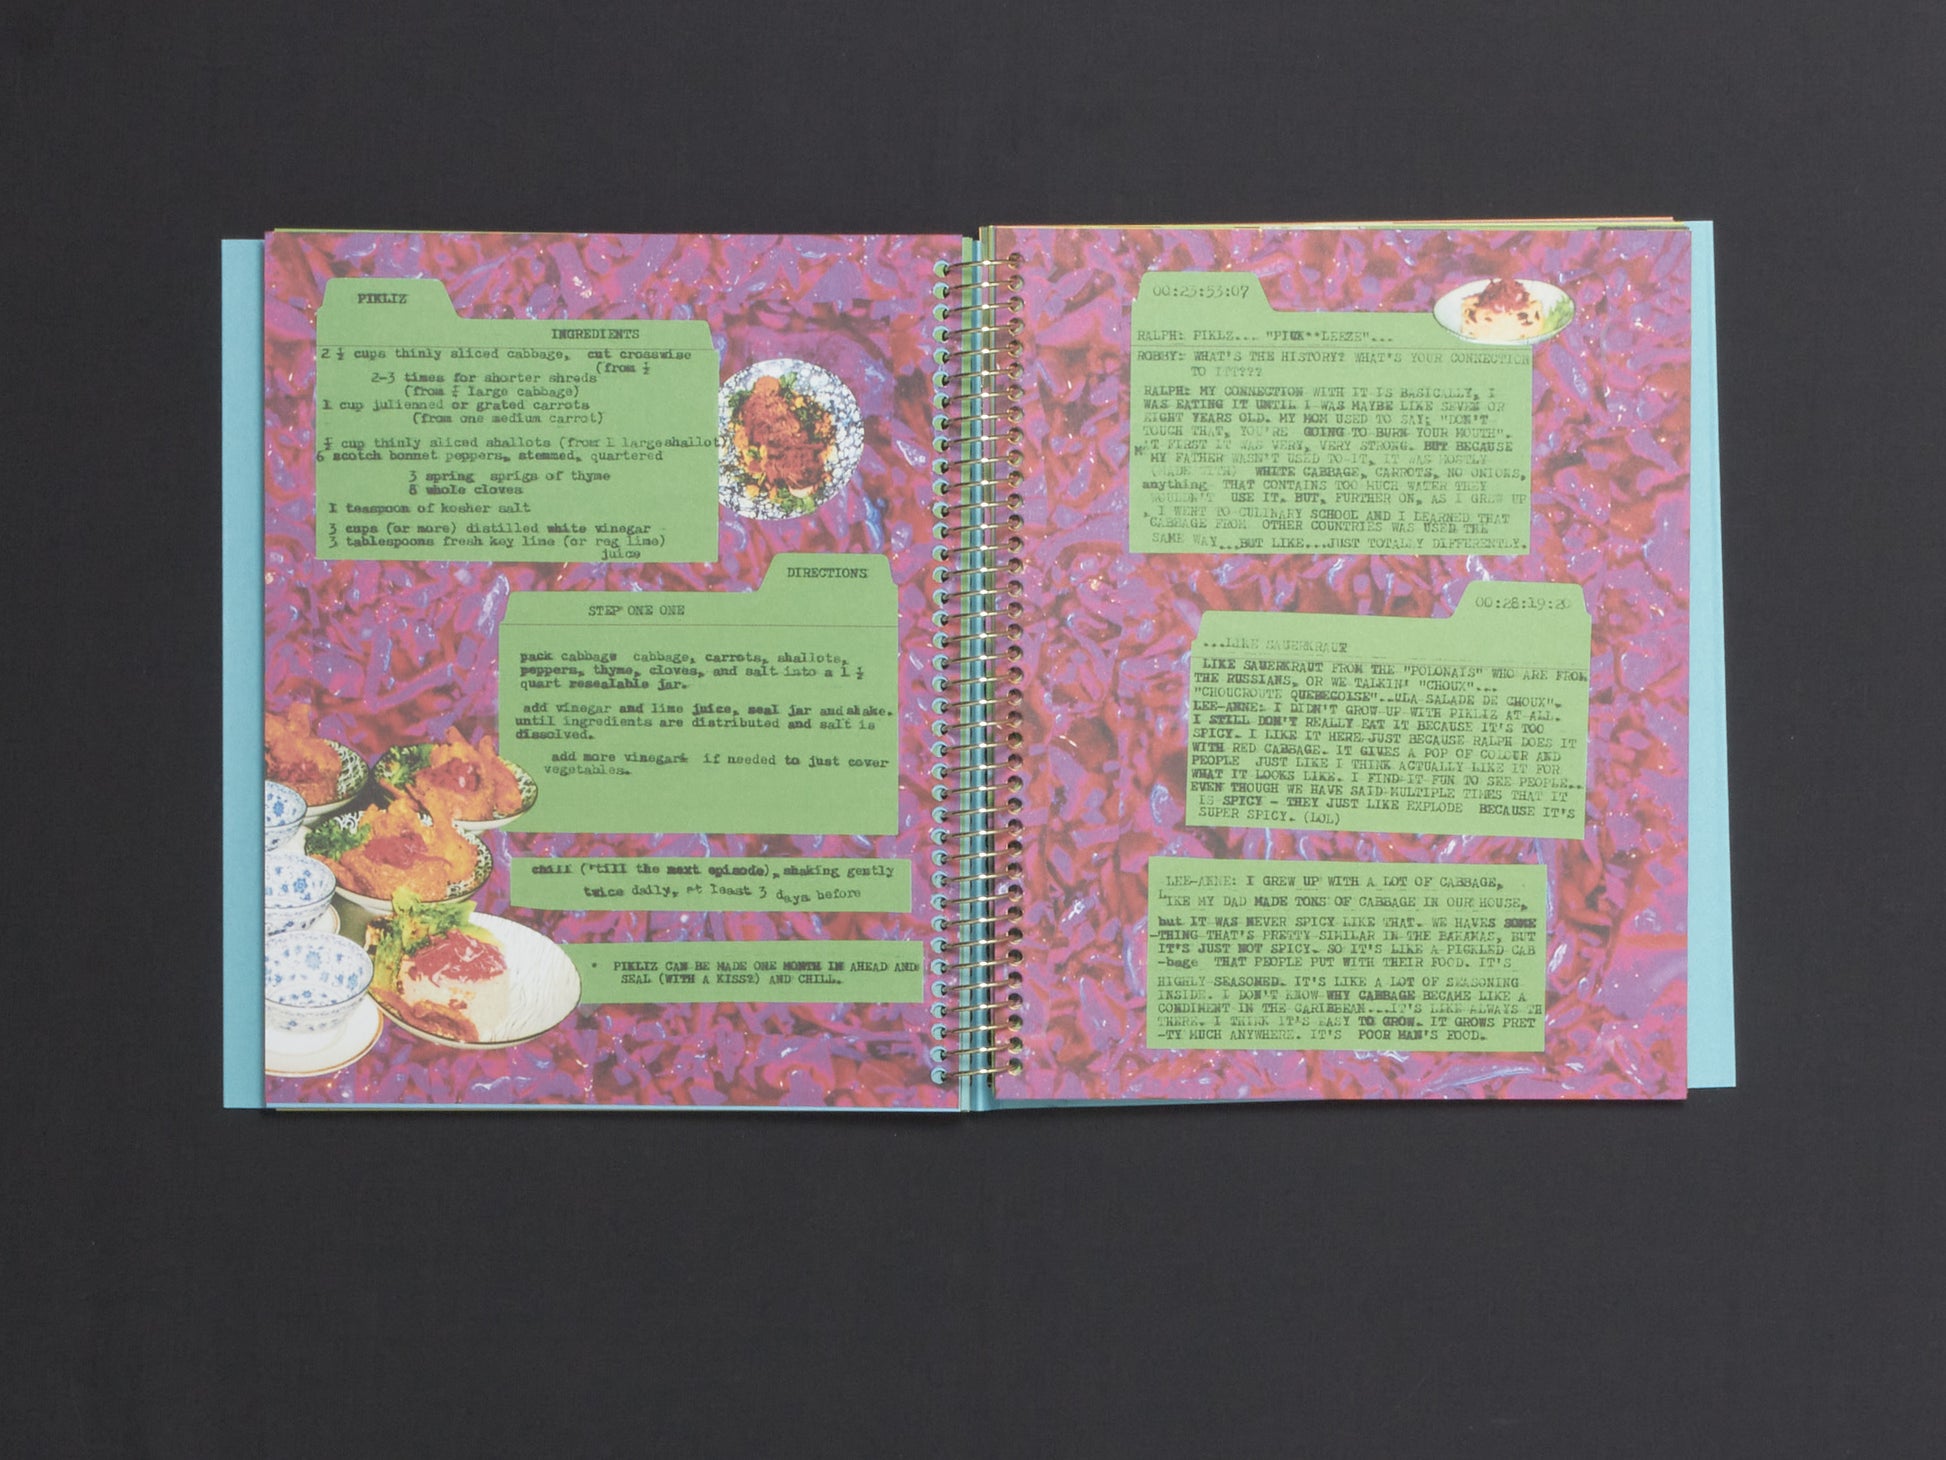 PIKLIZ
INGREDIENTS
2 ½ cups thinly sliced cabbage, cut crosswise
(from ½
2-3 times for shorter shreds
large cabbage)
1 cup julienned or grated carrots
(from one medium carrot)
cup thinly sliced shallots (from 1 largeshallot)
6 scotch bonnet peppers, stemmed, quartered
3 spring sprigs of thyme
8 whole cloves
1 teaspoon of kosher salt
3 cups (or more) distilled white vinegar
3 tablespoons fresh key lime (or reg lime)
juice
DIRECTIONS
STEP ONE ONE
pack cabbage cabbage, carrots, shallots,
peppers, thyme, cloves, and salt into a 1 ½
quart resealable jar.
add vinegar and lime juice, seal jar andshake.
until ingredients are distributed and salt is
dissolved.
add more vinegar if needed to just cover
vegetables.
chill ('till the next episode), shaking gently
twice daily, at least 3 days before
* PIKLIZ CAN BE MADE ONE MONTH IN AHEAD AND
SEAL (WITH A KISS?) AND CHILL.
00:23:53:07
RALPH: PIKLZ... "PICK**LEEZE"...
ROBBY: WHAT'S THE HISTORY? WHAT'S YOUR CONNECTION
TO IT???
RALPH: MY CONNECTION WITH IT IS BASICALLY, I
WAS EATING IT UNTIL I WAS MAYBE LIKE SEVEN OR
EIGHT YEARS OLD. MY MOM USED TO SAY, "DON'T
TOUCH THAT, YOU'RE GOING TO BURN YOUR MOUTH".
AT FIRST IT WAS VERY, VERY STRONG. BUT BECAUSE
MY FATHER WASN'T USED TO IT, IT WAS MOSTLY
(MADE WITH) WHITE CABBAGE, CARROTS, NO ONIONS,
anything THAT CONTAINS TOO MUCH WATER THEY
WOULDN'T USE IT. BUT, FURTHER ON, AS I GREW UP
, I WENT TO CULINARY SCHOOL AND I LEARNED THAT
CABBAGE FROM OTHER COUNTRIES WAS USED THE
SAME WAY...BUT LIKE...JUST TOTALLY DIFFERENTLY.
00:28:19:20
...LIKE SAUERKRAUT
LIKE SAUERKRAUT FROM THE "POLONAIS" WHO ARE FROM
THE RUSSIANS, OR WE TALKIN' "CHOUX"...
"CHOUCROUTE QUEBECOISE"..."LA SALADE DE CHOUX".
LEE-ANNE: I DIDN'T GROW UP WITH PIKLIZ AT ALL.
I STILL DON'T REALLY EAT IT BECAUSE IT'S TOO
SPICY. I LIKE IT HERE JUST BECAUSE RALPH DOES IT
WITH RED CABBAGE. IT GIVES A POP OF COLOUR AND
PEOPLE JUST LIKE I THINK ACTUALLY LIKE IT FOR
WHAT IT LOOKS LIKE. I FIND IT FUN TO SEE PEOPLE..
EVEN THOUGH WE HAVE SAID MULTIPLE TIMES THAT IT
IS SPICY - THEY JUST LIKE EXPLODE BECAUSE IT'S
SUPER SPICY. (LOL)
LEE-ANNE: I GREW UP WITH A LOT OF CABBAGE,
LIKE MY DAD MADE TONS OF CABBAGE IN OUR HOUSE,
but IT WAS NEVER SPICY LIKE THAT. WE HAVES SOME
-THING THAT'S PRETTY SIMILAR IN THE BAHAMAS, BUT
IT'S JUST NOT SPICY. SO IT'S LIKE A PICKLED CAB
-bage THAT PEOPLE PUT WITH THEIR FOOD. IT'S
HIGHLY SEASONED. IT'S LIKE A LOT OF SEASONING
INSIDE. I DON'T KNOW WHY CABBAGE BECAME LIKE A
CONDIMENT IN THE CARIBBEAN...IT'S LIKE ALWAYS TH
THERE. I THINK IT'S EASY TO GROW. IT GROWS PRET
-TY MUCH ANYWHERE. IT'S POOR MAN'S FOOD.